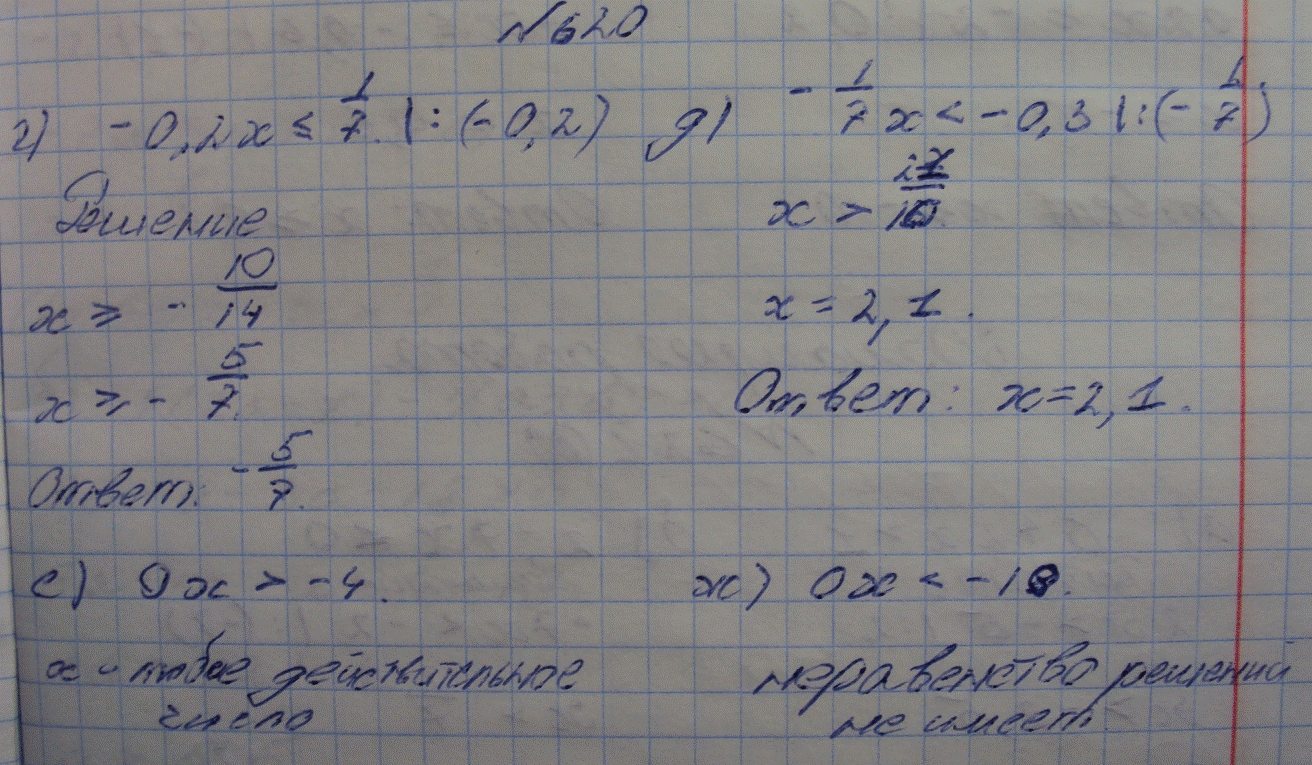 №620
г) -0,2x ≤ 1/7. |:(-0,2)
Решение
x ≥ - 10/14
x ≥ - 5/7.
Ответ: - 5/7.
д) - 1/7 x < -0,3 |:(- 1/7)
x > 21/10.
x = 2,1.
Ответ: x=2,1.
е) 0x > -4.
x - любое действительное
число
ж) 0x < -18.
неравенство решений
не имеет.